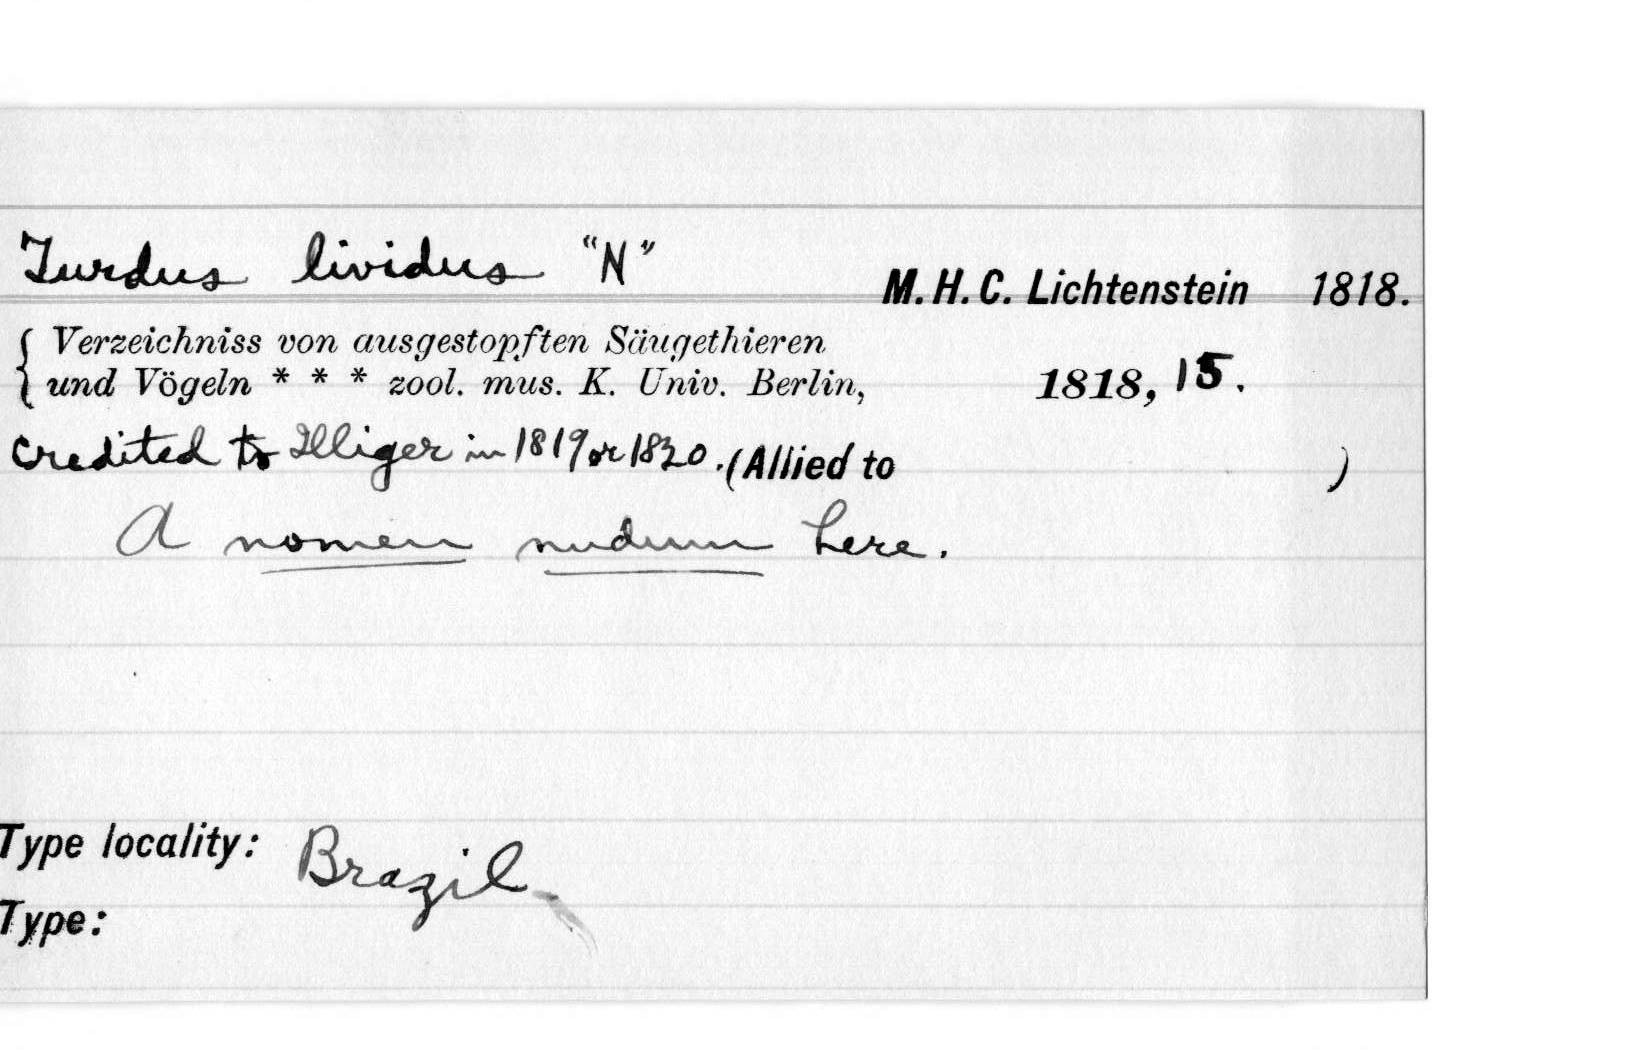 Turdus lividus "N" M. H. C. Lichtenstein 1818.
{ Verzeichniss von ausgestopften Säugethieren
und Vögeln * * * zool. mus. K. Univ. Berlin, 1818, 15.
credited to Illiger in 1819 or 1820. (Allied to )
A nomen nudum here.
Type locality: Brazil
Type: